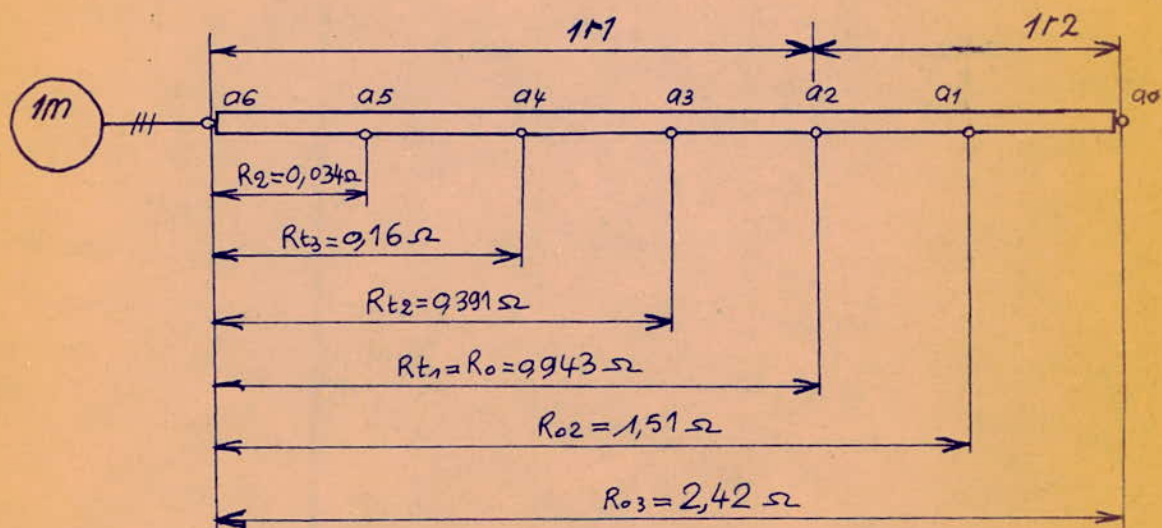 1r1 1r2
1m a6 a5 a4 a3 a2 a1 a0
R2=0,034Ω
Rt3=0,16 Ω
Rt2=0,391 Ω
Rt1=R0=0,943 Ω
R02=1,51 Ω
R03=2,42 Ω